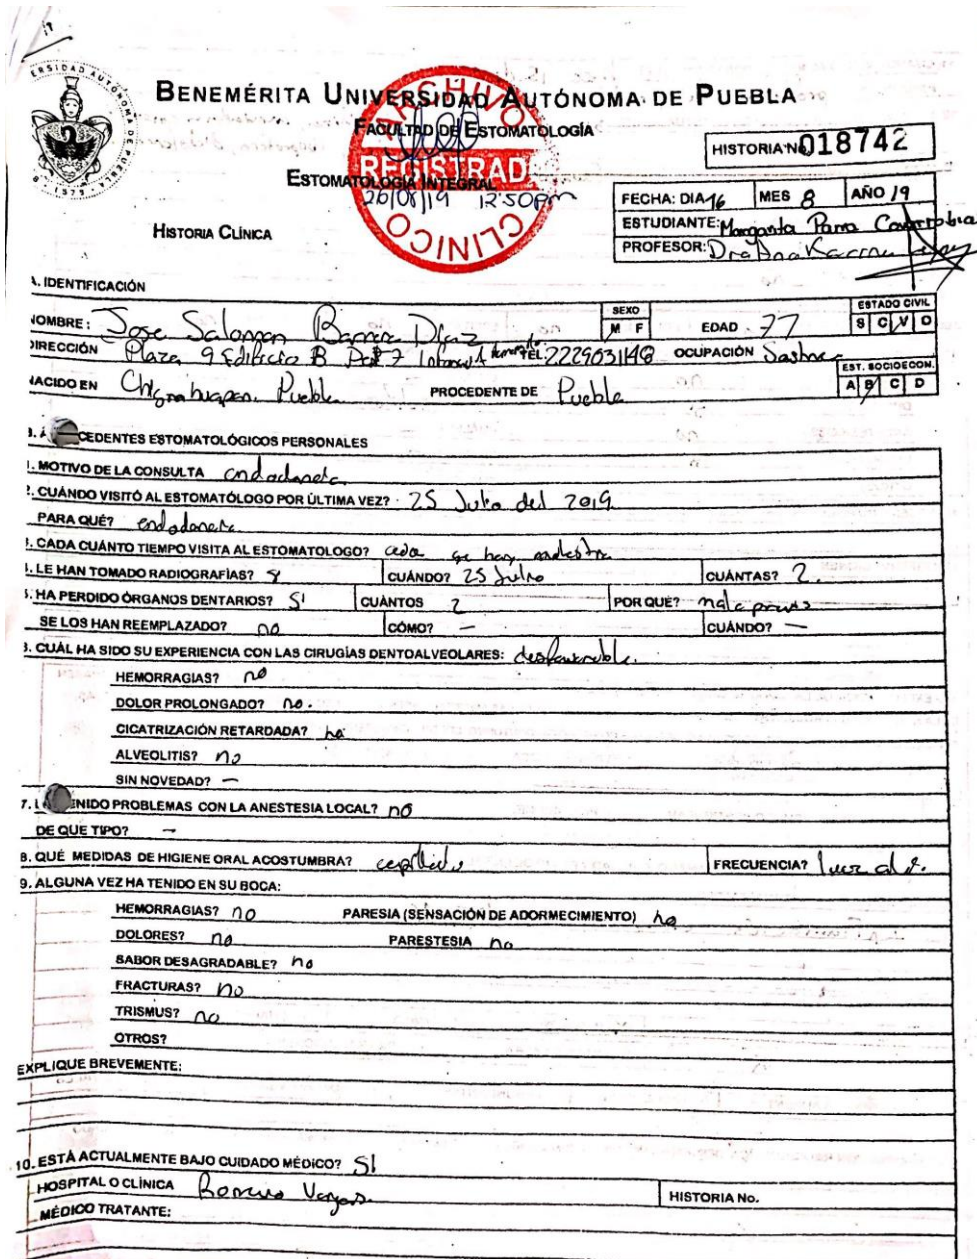 BENEMÉRITA UNIVERSIDAD AUTÓNOMA DE PUEBLA
FACULTAD DE ESTOMATOLOGÍA
HISTORIA No 018742
ARCHIVO CLINICO
REGISTRAD
ESTOMATOLOGÍA INTEGRAL
26/08/19 12:50pm
FECHA: DIA 16 MES 8 AÑO 19
ESTUDIANTE: Margarita Parra
HISTORIA CLÍNICA
PROFESOR: Dra Ana Karina
A. IDENTIFICACIÓN
NOMBRE: Jose Salomon Barrera Díaz SEXO M F EDAD 77 ESTADO CIVIL S C V D
DIRECCIÓN Plaza 9 Edificio B TEL 2229031148 OCUPACIÓN Sastre EST. SOCIOECON. A B C D
NACIDO EN Chignahuapan, Puebla PROCEDENTE DE Puebla
CEDENTES ESTOMATOLÓGICOS PERSONALES
1. MOTIVO DE LA CONSULTA endodoncia
2. CUÁNDO VISITÓ AL ESTOMATÓLOGO POR ÚLTIMA VEZ? 25 Julio del 2019
PARA QUÉ? endodoncia
CADA CUÁNTO TIEMPO VISITA AL ESTOMATOLOGO? cada que hay molestia
LE HAN TOMADO RADIOGRAFÍAS? CUÁNDO? 25 Julio CUÁNTAS? 2.
HA PERDIDO ÓRGANOS DENTARIOS? Si CUÁNTOS 2 POR QUÉ? mala
SE LOS HAN REEMPLAZADO? no CÓMO? — CUÁNDO? —
CUÁL HA SIDO SU EXPERIENCIA CON LAS CIRUGÍAS DENTOALVEOLARES: desfavorable.
HEMORRAGIAS? no
DOLOR PROLONGADO? no.
CICATRIZACIÓN RETARDADA? no
ALVEOLITIS? no
SIN NOVEDAD? —
7. ENIDO PROBLEMAS CON LA ANESTESIA LOCAL? no
DE QUE TIPO? —
8. QUÉ MEDIDAS DE HIGIENE ORAL ACOSTUMBRA? cepillado FRECUENCIA? 1 vez al
9. ALGUNA VEZ HA TENIDO EN SU BOCA:
HEMORRAGIAS? no PARESIA (SENSACIÓN DE ADORMECIMIENTO) no
DOLORES? no PARESTESIA no
SABOR DESAGRADABLE? no
FRACTURAS? no
TRISMUS? no
OTROS?
EXPLIQUE BREVEMENTE:
10. ESTÁ ACTUALMENTE BAJO CUIDADO MÉDICO? SI
HOSPITAL O CLÍNICA Romero Vargas HISTORIA No.
MÉDICO TRATANTE: